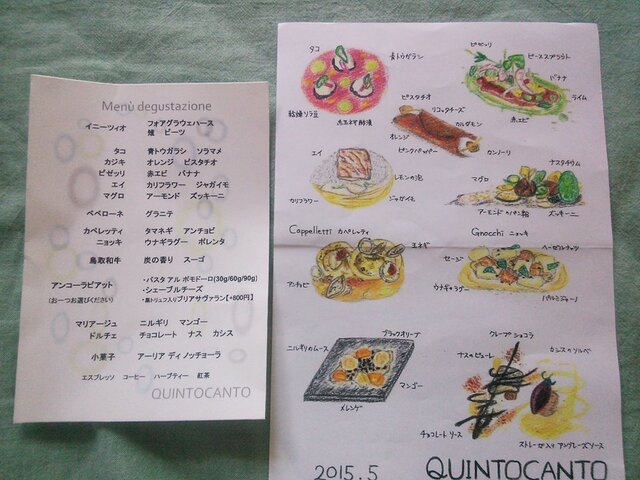 Menù degustazione
イニーツィオ フォアグラウェハース
燻 ビーツ
タコ 青トウガラシ ソラマメ
カジキ オレンジ ピスタチオ
ピゼッリ 赤エビ バナナ
エイ カリフラワー ジャガイモ
マグロ アーモンド ズッキーニ
ペペローネ グラニテ
カペレッティ タマネギ アンチョビ
ニョッキ ウナギラグー ポレンタ
鳥取和牛 炭の香り スーゴ
アンコーラピアット
(お一つお選びください)
・パスタ アル ポモドーロ(30g/60g/90g)
・シェーブルチーズ
・黒トリュフ入りブリアサヴァラン【+800円】
マリアージュ ニルギリ マンゴー
ドルチェ チョコレート ナス カシス
小菓子 アーリア ディ ノッチョーラ
エスプレッソ コーヒー ハーブティー 紅茶
QUINTOCANTO
タコ
青トウガラシ
乾燥ソラ豆
ピゼッリ
ピーススプラウト
バナナ
ライム
赤エビ
ピスタチオ
リコッタチーズ
カルダモン
オレンジ
ピンクペッパー
カンノーリ
エイ
レモンの泡
カリフラワー
ジャガイモ
ナスタチウム
マグロ
アーモンドのパン粉
ズッキーニ
Cappelletti カペレッティ
玉ネギ
アンチョビ
Gnocchi ニョッキ
ヘーゼルナッツ
セージ
ウナギラグー
パルミジャーノ
ブラックオリーブ
ニルギリのムース
マンゴー
メレンゲ
クレープ ショコラ
ナスのピューレ
カシスのソルベ
チョコレート ソース
ストレーガ入り アングレーズソース
2015.5 QUINTOCANTO